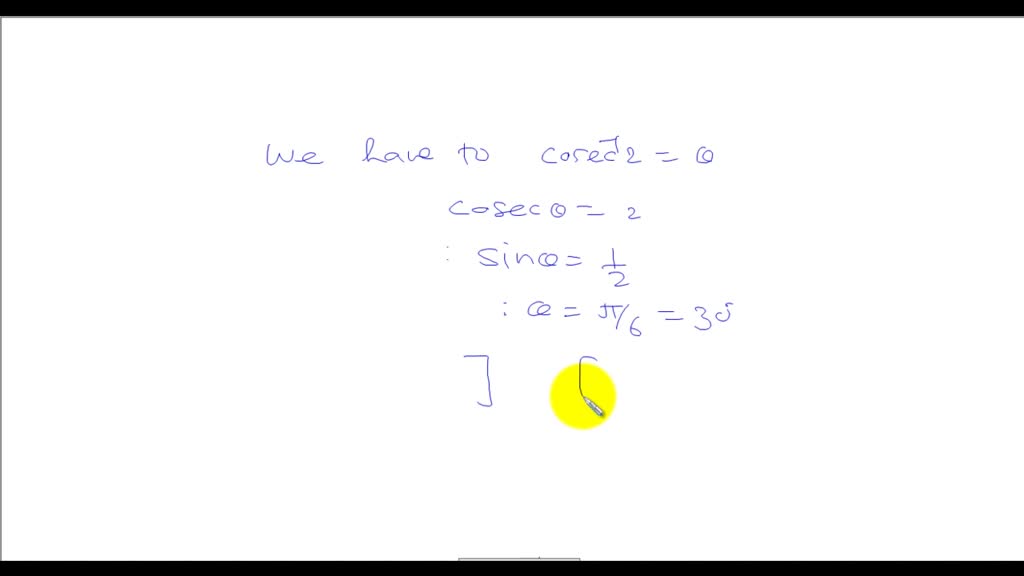 We have to cosec⁻¹2 = θ
cosecθ = 2
: sinθ = 1/2
: θ = π/6 = 30°
] [